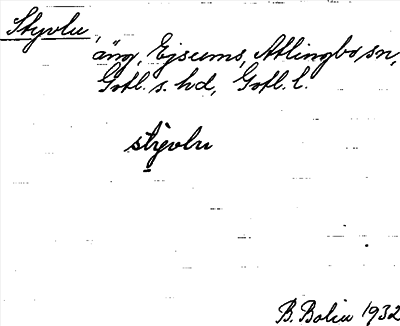 Styvlu,
äng, Ejsums, Atlingbo sn,
Gotl. s. hd, Gotl. l.
styvlu
B. Bolin 1932